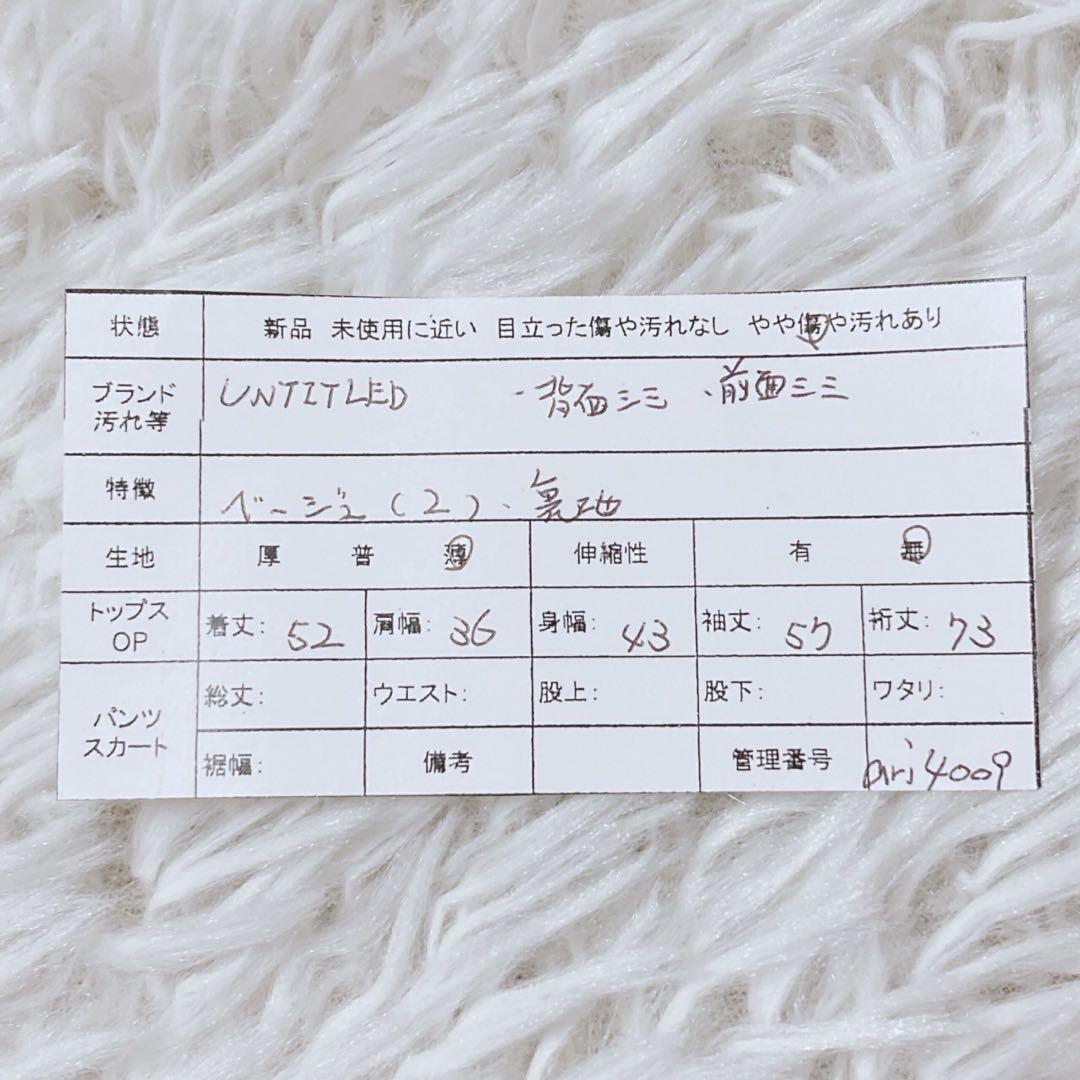 状態 新品 未使用に近い 目立った傷や汚れなし やや傷や汚れあり
ブランド 汚れ等 UNTITLED ・背面シミ ・前面シミ
特徴 ベージュ(2)、裏地
生地 厚 普 薄 伸縮性 有 無
トップス OP 着丈: 52 肩幅: 36 身幅: 43 袖丈: 57 裄丈: 73
パンツ スカート 総丈: ウエスト: 股上: 股下: ワタリ:
裾幅: 備考 管理番号